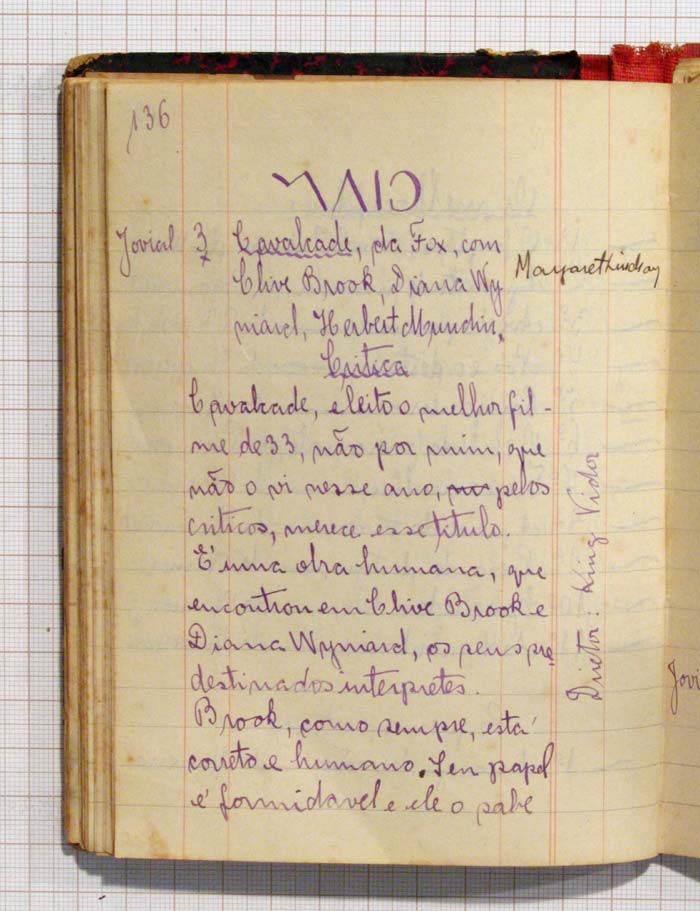 136
MAIO
Jovial 3 Cavalcade, da Fox, com
Clive Brook, Diana Wy
niard, Herbert Mundin,
Margaret Lindsay
Critica
Cavalcade, eleito o melhor fil-
me de 33, não por mim, que
não o vi nesse ano, pelos
criticos, merece esse titulo.
É uma obra humana, que
encontrou em Clive Brook e
Diana Wyniard, os seus pre
destinados interpretes.
Brook, como sempre, está
correto e humano. Seu papel
é formidavel e ele o sabe
Diretor: King Vidor
Jovi